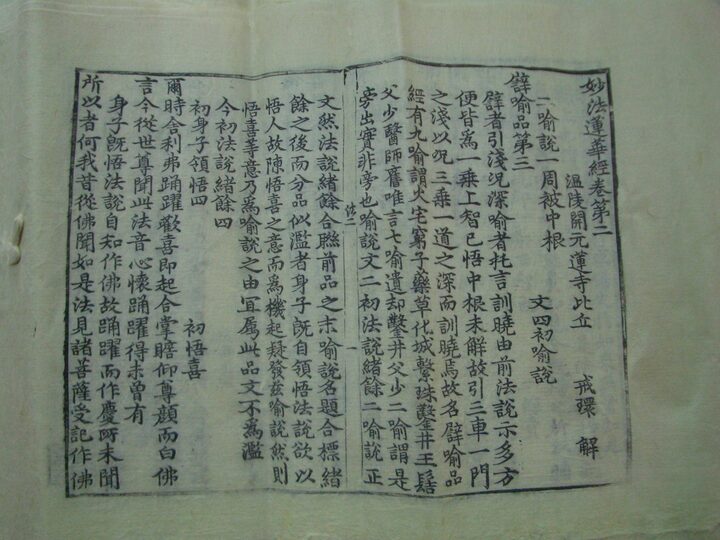 妙法蓮華經卷第二
溫陵開元蓮寺比丘 戒環 解
二喻說一周被中根 文四初喻說
譬喻品第三
譬者引淺況深喻者托言訓曉由前法說示多方
便皆爲一乘上智已悟中根未解故引三車一門
之淺以况三乘一道之深而訓曉焉故名譬喻品
經有九喻謂火宅窮子藥草化城繫珠鑿井王髻
父少醫師舊唯言七喻遺却鑿井父少二喻謂是
旁出實非旁也喻說文二初法說緒餘二喻說正
法二
文然法說緒餘合聮前品之末喻說名題合標緒
餘之後而分品似濫者身子旣自領悟法說欲以
悟人故陳悟喜之意而爲機起疑發玆喻說然則
悟喜等意乃爲喻說之由冝属此品文不爲濫
今初法說緒餘四
初身子領悟四 初悟喜
爾時舍利弗踊躍歡喜即起合掌瞻仰尊顔而白佛
言今從世尊聞此法音心懷踊躍得未曾有
身子旣悟法說自知作佛故踊躍而作慶所未聞
所以者何我昔從佛聞如是法見諸菩薩受記作佛